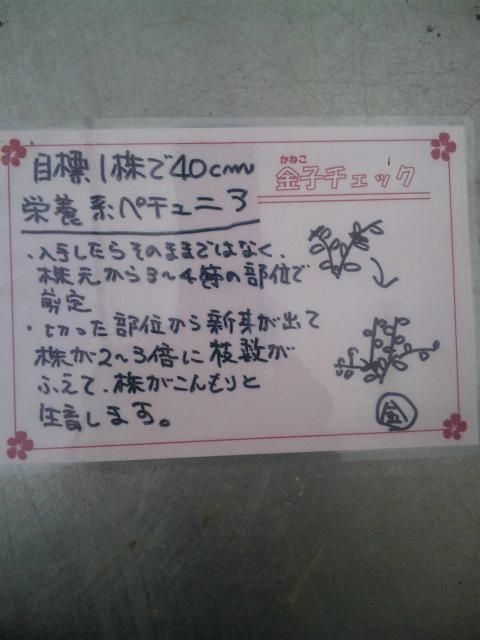 目標1株で40cm
かねこ
金子チェック
栄養系ペチュニア
・入手したらそのままではなく、
株元から3〜4節の部位で
剪定
・切った部位から新芽が出て
株が2〜3倍に枝数が
ふえて、株がこんもりと
生育します。
金